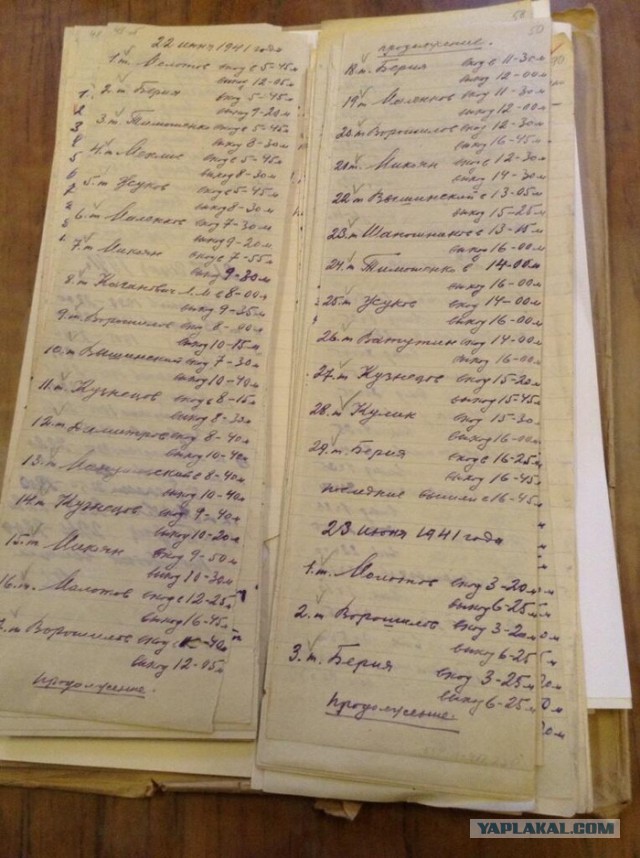 22 июня 1941 года
1. т. Молотов вход в 5-45м
выход 12-05м
2. т. Берия вход 5-45м
выход 9-20м
3. т. Тимошенко вход в 5-45м
выход 8-30м
4. т. Мехлис вход в 5-45м
выход 8-30м
5. т. Жуков вход в 5-45м
выход 8-30м
6. т. Маленков вход 7-30м
выход 9-20м
7. т. Микоян вход в 7-55м
выход 9-30м
8. т. Каганович Л.М в 8-00м
выход 9-35м
9. т. Ворошилов вход 8-00м
выход 10-15м
10. т. Вышинский вход 7-30м
выход 10-40м
11. т. Кузнецов вход в 8-15м
выход 8-30м
12. т. Димитров вход 8-40м
выход 10-40м
13. т. в 8-40м
выход 10-40м
14. т. Кузнецов вход 9-40м
выход 10-20м
15. т. Микоян вход 9-50м
выход 10-30м
16. т. Молотов вход в 12-25м
выход 16-45м
т. Ворошилов вход
выход 12-05м
продолжение.
50
продолжение.
18. т. Берия вход в 11-30м
выход 12-00м
19. т. Маленков вход 11-30м
выход 12-00м
20. т. Ворошилов вход 12-30
выход 16-45м
21. т. Микоян вход в 12-30м
выход 14-30м
22. т. Вышинский в 13-05м
выход 15-25м
23. т. Шапошников в 13-15м
выход 16-00м
24. т. Тимошенко в 14-00м
выход 16-00м
25. т. Жуков вход 14-00м
выход 16-00м
26. т. Ватутин вход 14-00м
выход 16-00м
27. т. Кузнецов вход 15-20м
выход 15-45м
28. т. Кулик вход 15-30м
выход 16-00м
29. т. Берия вход в 16-25м
выход 16-45м
последние вышли в 16-45м
23 июня 1941 года
1. т. Молотов вход 3-20м
выход 6-25м
2. т. Ворошилов вход 3-20м
выход 6-25
3. т. Берия вход 3-25м
выход 6-25м
продолжение.
YAPLAKAL.COM